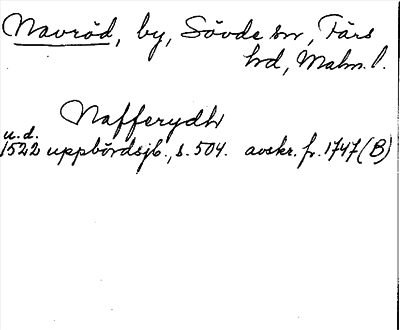 Navröd, by, Sövde sn, Färs
hd, Malm. l.
Nafferydh
u.d.
1522 uppbördsjb., s. 504. avskr. fr. 1747 (B)